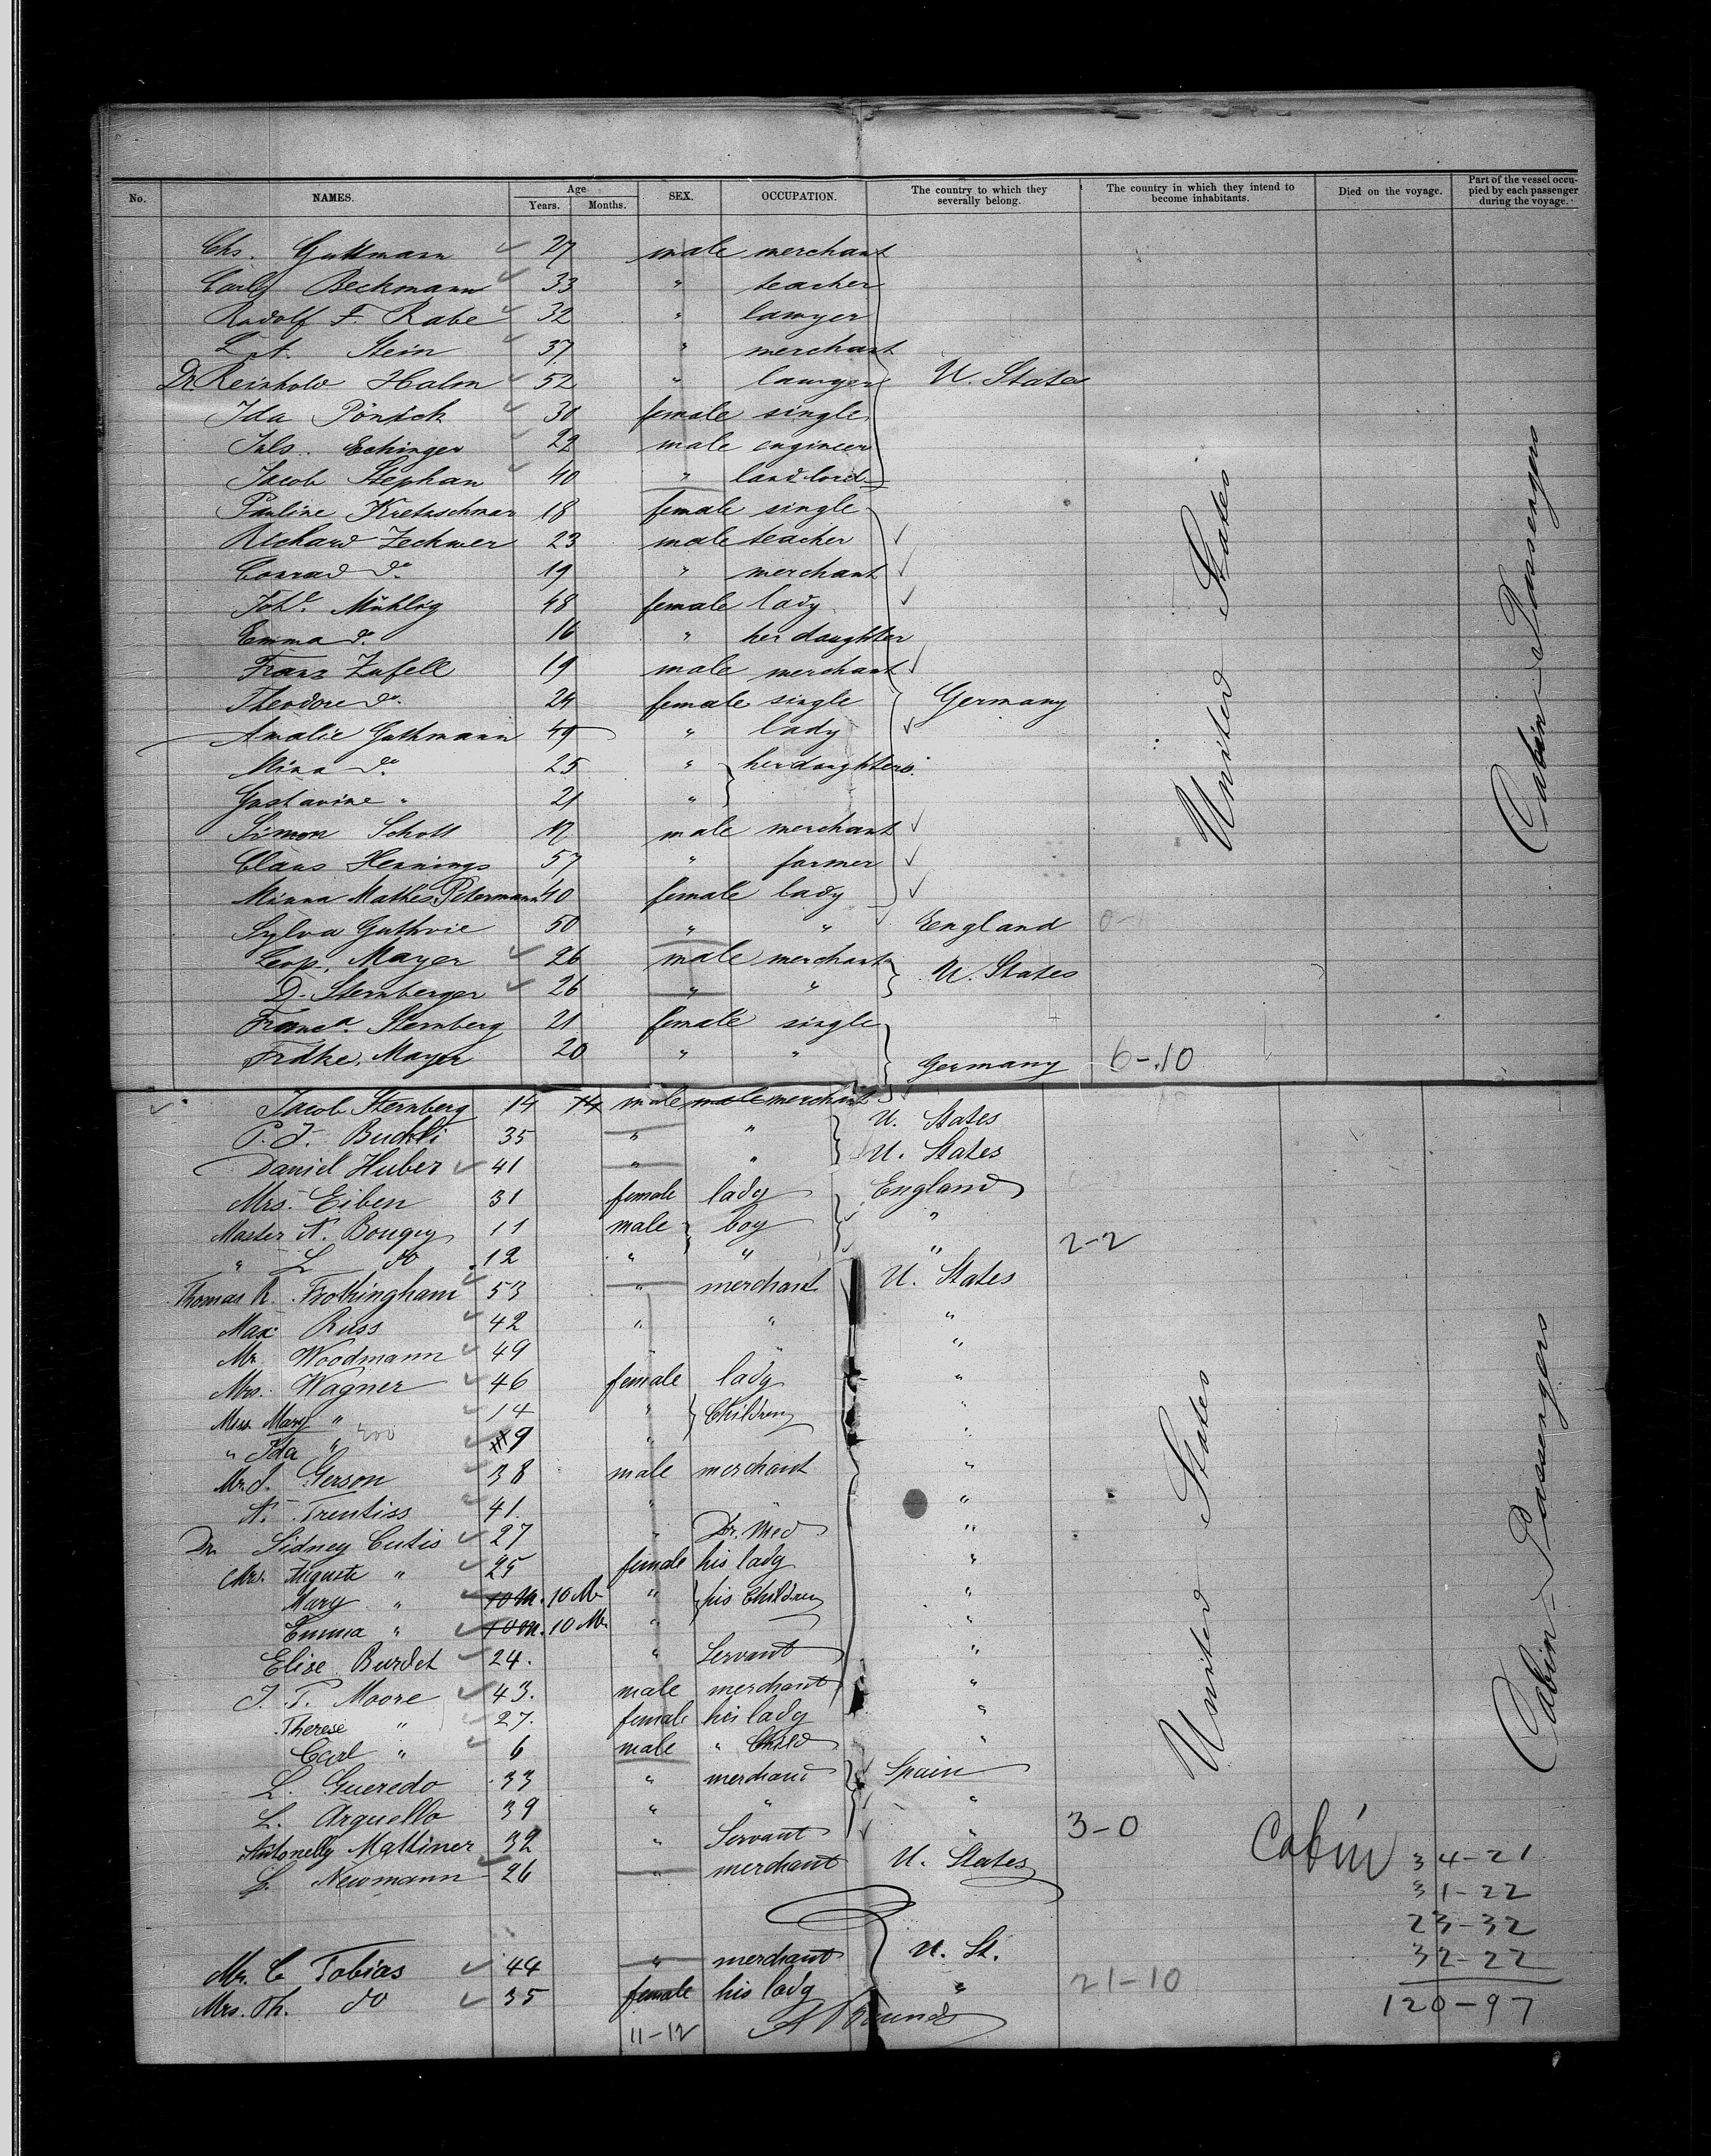 No. NAMES. Age Years. Months. SEX. OCCUPATION. The country to which they severally belong. The country in which they intend to become inhabitants. Died on the voyage. Part of the vessel occupied by each passenger during the voyage.
Chs. Guttmann 27 male merchant
Carl Beckmann 33 " teacher
Rudolf F. Rabe 32 " lawyer
L. A. Stein 37 " merchant
Dr. Reinhold Halm 52 " lawyer U. States
Ida Pönsch 30 female single
Juls. Echinger 22 male engineer
Jacob Stephan 40 " landlord
Pauline Kretzschmar 18 female single
Richard Zechwer 23 male teacher
Conrad do 19 " merchant
Joh. Mühlig 48 female lady
Emma do 16 " her daughter
Franz Zufell 19 male merchant
Theodore do 24 female single Germany
Amalie Guthmann 49 " lady
Mina do 25 " her daughters
Gustavine " 21 "
Simon Scholl 17 male merchant
Claus Hennings 57 " farmer
Minna Mathes Petermann 40 female lady
Sylva Guthrie 50 " " England
Leop. Mayer 26 male merchant U. States
D. Sternberger 26 " "
Franca. Sternberg 21 female single
Frdke. Mayer 20 " " Germany 6-10
United States
Cabin Passengers
Jacob Sternberg 14 14 male male merchant
P. J. Buchli 35 " " U. States
Daniel Huber 41 " " U. States
Mrs. Eiben 31 female lady England
Master A. Bouguy 11 male boy "
" L do 12 " " " 2-2
Thomas R. Frothingham 53 " merchant U. States
Max Russ 42 " " "
Mr. Woodmann 49 " " "
Mrs. Wagner 46 female lady "
Miss Mary " 14 " Children "
" Ida " 9 " "
Mr. J. Gerson 38 male merchant "
A. Trentiss 41 " " "
Dr. Sidney Cutis 27 " Dr. Med "
Mrs. Auguste " 25 female his lady "
Mary " 10 M. 10 M. " his Children "
Emma " 10 M. 10 M. " "
Elise Burdet 24. " Servant "
J. P. Moore 43. male merchant "
Therese " 27. female his lady "
Carl " 6 male " Child "
L. Gueredo 33 " merchant Spain
L. Arguello 39 " " "
Antonelly Mattiner 32 " Servant " 3-0
L. Newmann 26 " merchant U. States
Mr. C Tobias 44 " merchant U. St.
Mrs. Th. do 35 female his lady " 21-10
11-12
United States
Cabin Passengers
Cabin 34-21
31-22
23-32
32-22
120-97